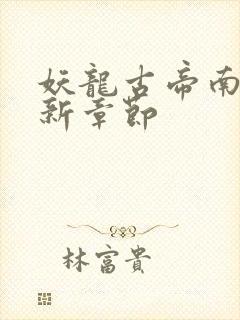 妖龍古帝南
新章節
林富貴